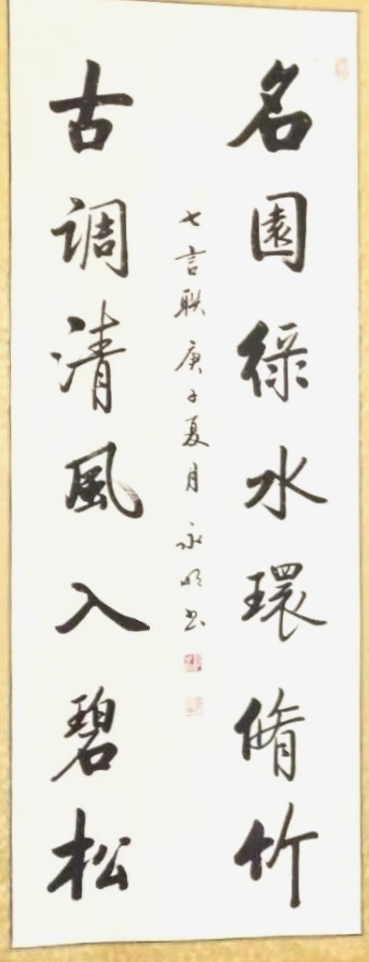 名園綠水環脩竹
古調清風入碧松
七言聯庚子夏月永明書